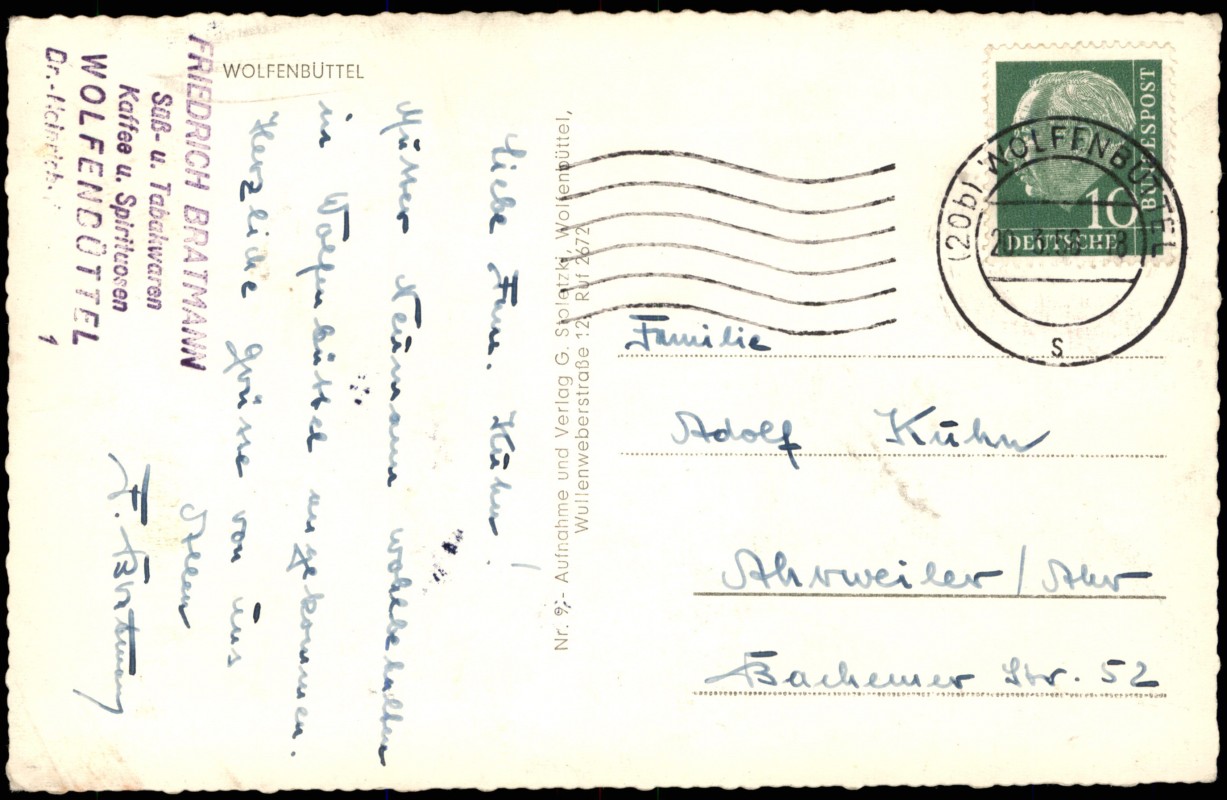 WOLFENBÜTTEL
FRIEDRICH BRATMANN
Süß- u. Tabakwaren
Kaffee u. Spirituosen
WOLFENBÜTTEL
Dr.-Heinrich-
1
Liebe Fam. Kühn!
Mutter Neumann wohlbehalten
in Wolfenbüttel angekommen.
Herzliche Grüsse von uns
Allen
F. Bratmann
Nr. 9,- Aufnahme und Verlag G. Stoletzki, Wolfenbüttel,
Wullenweberstraße 12, Ruf 2672
BUNDESPOST
10
DEUTSCHE
(20b) WOLFENBÜTTEL
20.3.56.-18
s
Familie
Adolf Kühn
Ahrweiler / Ahr
Bachemer Str. 52